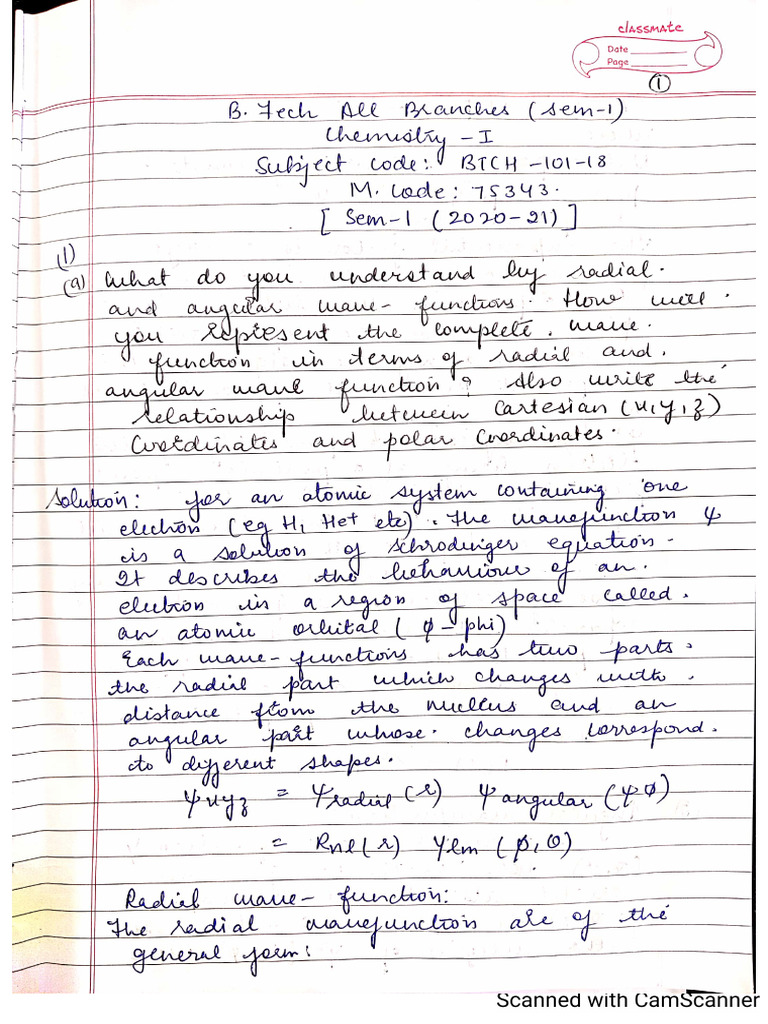 classmate
Date
Page
1
B. Tech All Branches (sem-1)
Chemistry - I
Subject code: BTCH -101-18
M. Code: 75343.
[ Sem-1 (2020-21) ]
(1)
(a) What do you understand by radial.
and angular wave- functions. How will.
you represent the complete. wave.
function in terms of radial and.
angular wave function? Also write the
relationship between Cartesian (x,y,z)
Coordinates and polar coordinates.
Solution: for an atomic system containing one
electron (eg H, He+ etc). The wavefunction ψ
is a solution of Schrodinger equation-
It describes the behaviour of an.
electron in a region of space called.
an atomic orbital ( φ - phi)
Each wave-functions has two parts.
the radial part which changes with.
distance from the nucleus and an
angular part whose. changes correspond.
to different shapes.
ψxyz = ψradial(r) ψangular (ψφ)
= Rnl(r) Ylm (φ,θ)
Radial wave- function:
The radial wavefunction are of the
general form:
Scanned with CamScanner